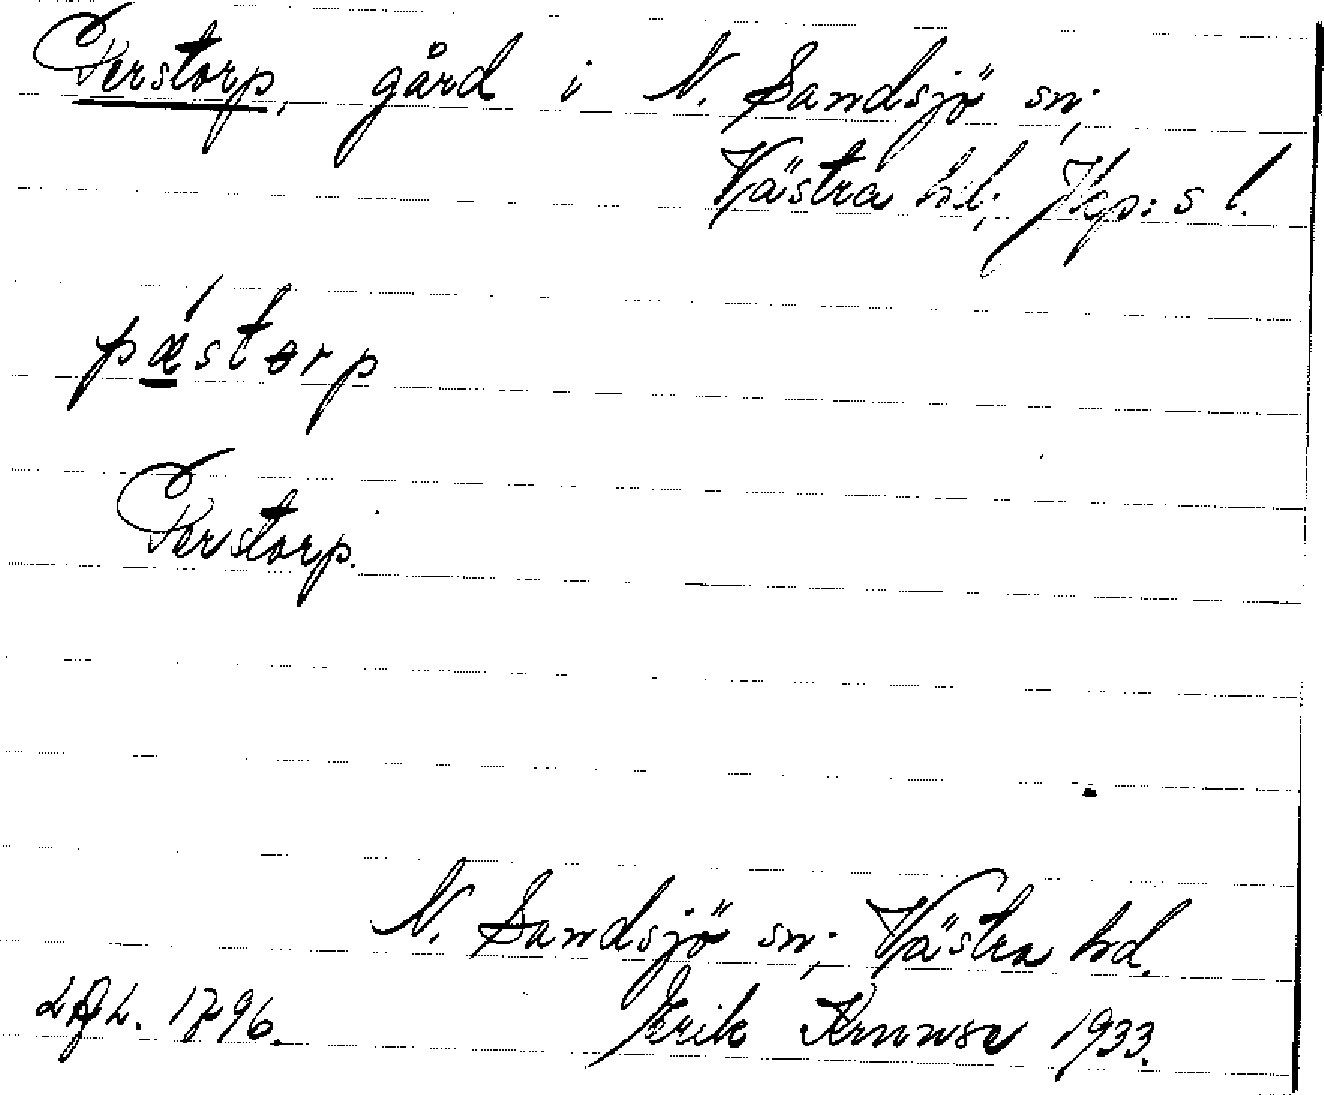 Perstorp, gård i N. Sandsjö sn;
Västra hd; Jkp:s l.
pǽ̲storp
Perstorp.
N. Sandsjö sn; Västra hd.
1796. Erik 1933.